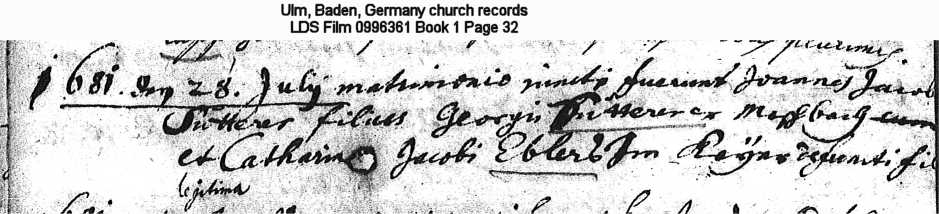 Ulm, Baden, Germany church records
LDS Film 0996361 Book 1 Page 32
1681. den 28. July matrimonio juncti fuerunt Joannes Jacob
Sütterer filius Georgii Sütterer ex Moßbach cum
et Catharina Jacobi Eblers Im defuncti fil
legitima